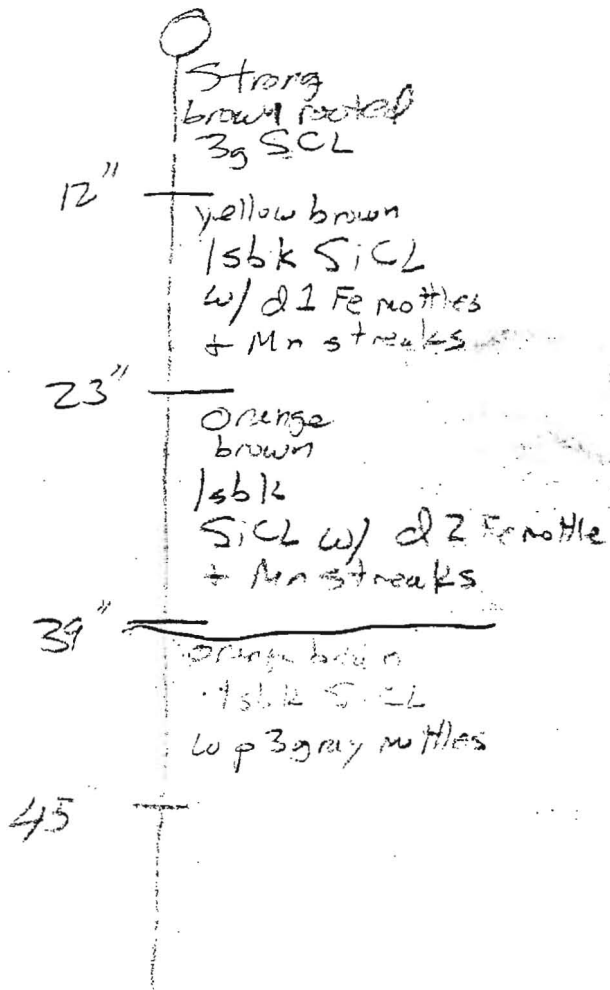 Strong
brown rooted
3g SCL
12"
yellow brown
1sbk SiCL
w/ d1 Fe mottles
+ Mn streaks
23"
orange
brown
1sbk
SiCL w/ d2 Fe mottle
+ Mn streaks
39"
orange brown
1sbk SiCL
w p3 gray mottles
45